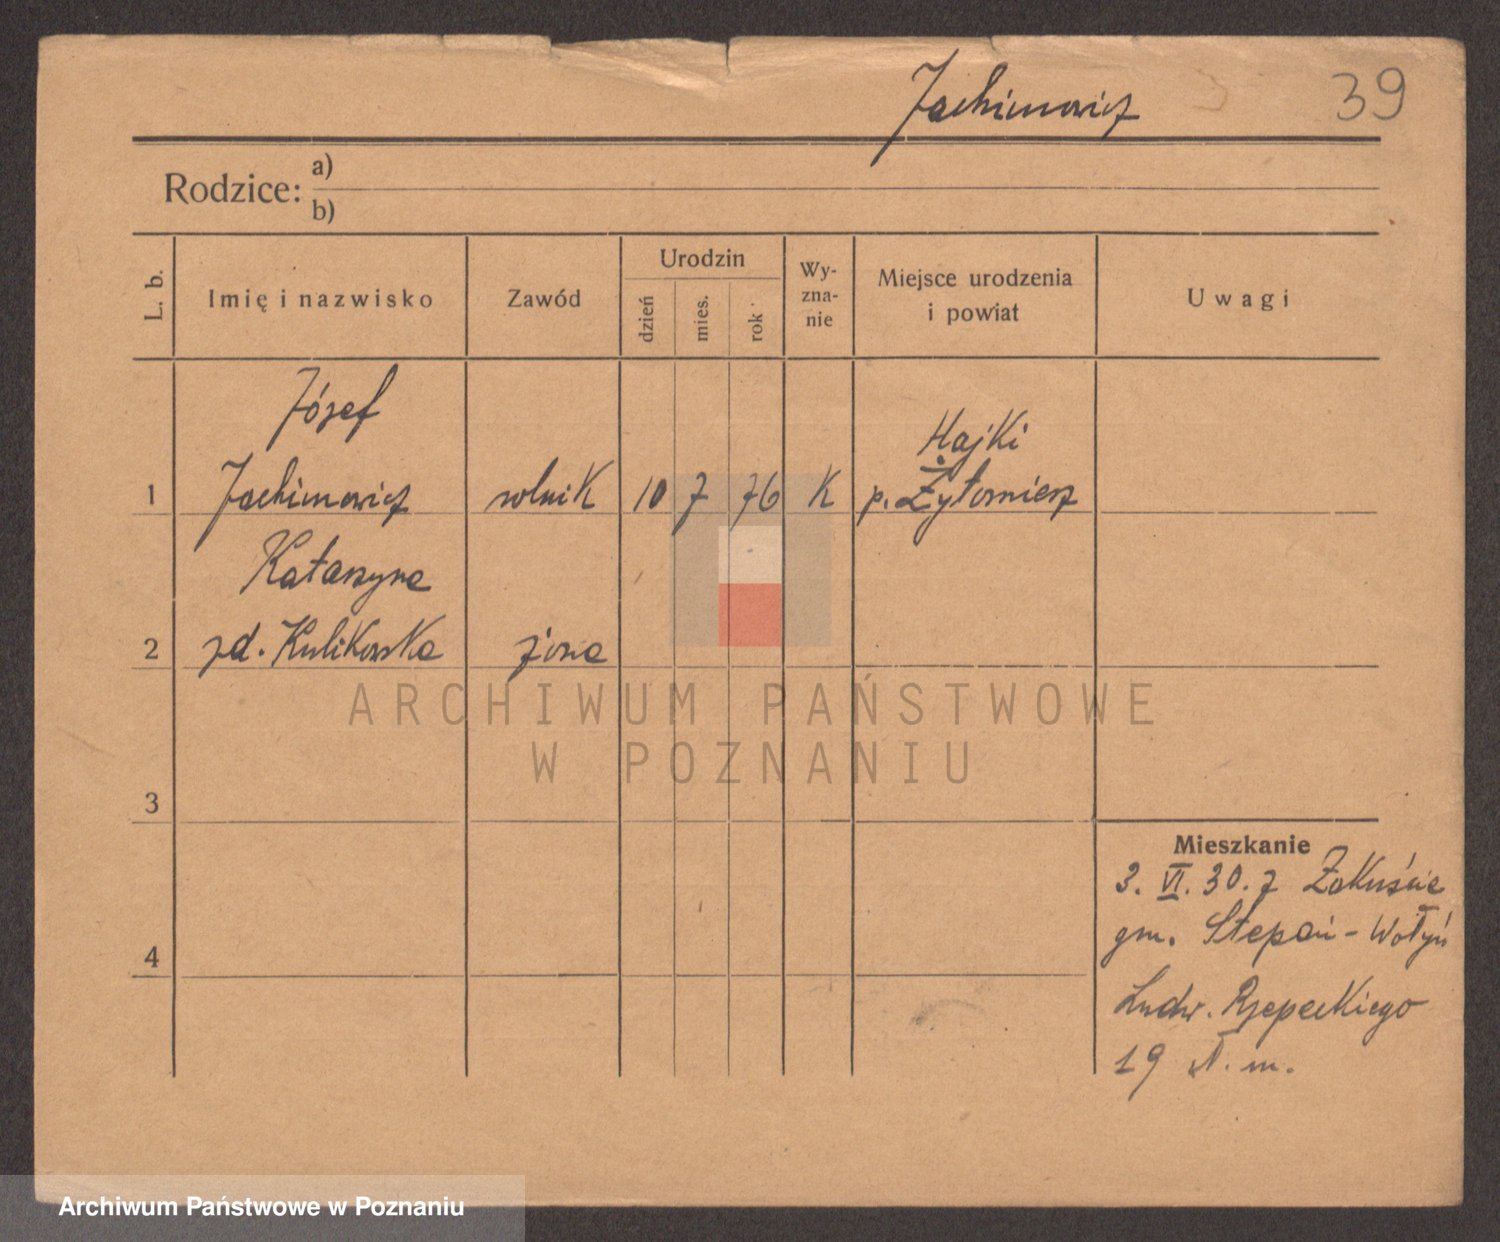 Jachimowicz 39
Rodzice: a)
b)
L. b. Imię i nazwisko Zawód Urodzin dzień mies. rok Wy-zna-nie Miejsce urodzenia i powiat Uwagi
Józef
Hajki
1 Jachimowicz rolnik 10 7 76 K p. Żytomierz
Katarzyna
2 zd. Kulikowska żona
ARCHIWUM PAŃSTWOWE
W POZNANIU
3
Mieszkanie
3. VI. 30. z Zakuście
gm. Stepań - Wołyń
4
Ludw. Rzepeckiego
19 m.
Archiwum Państwowe w Poznaniu